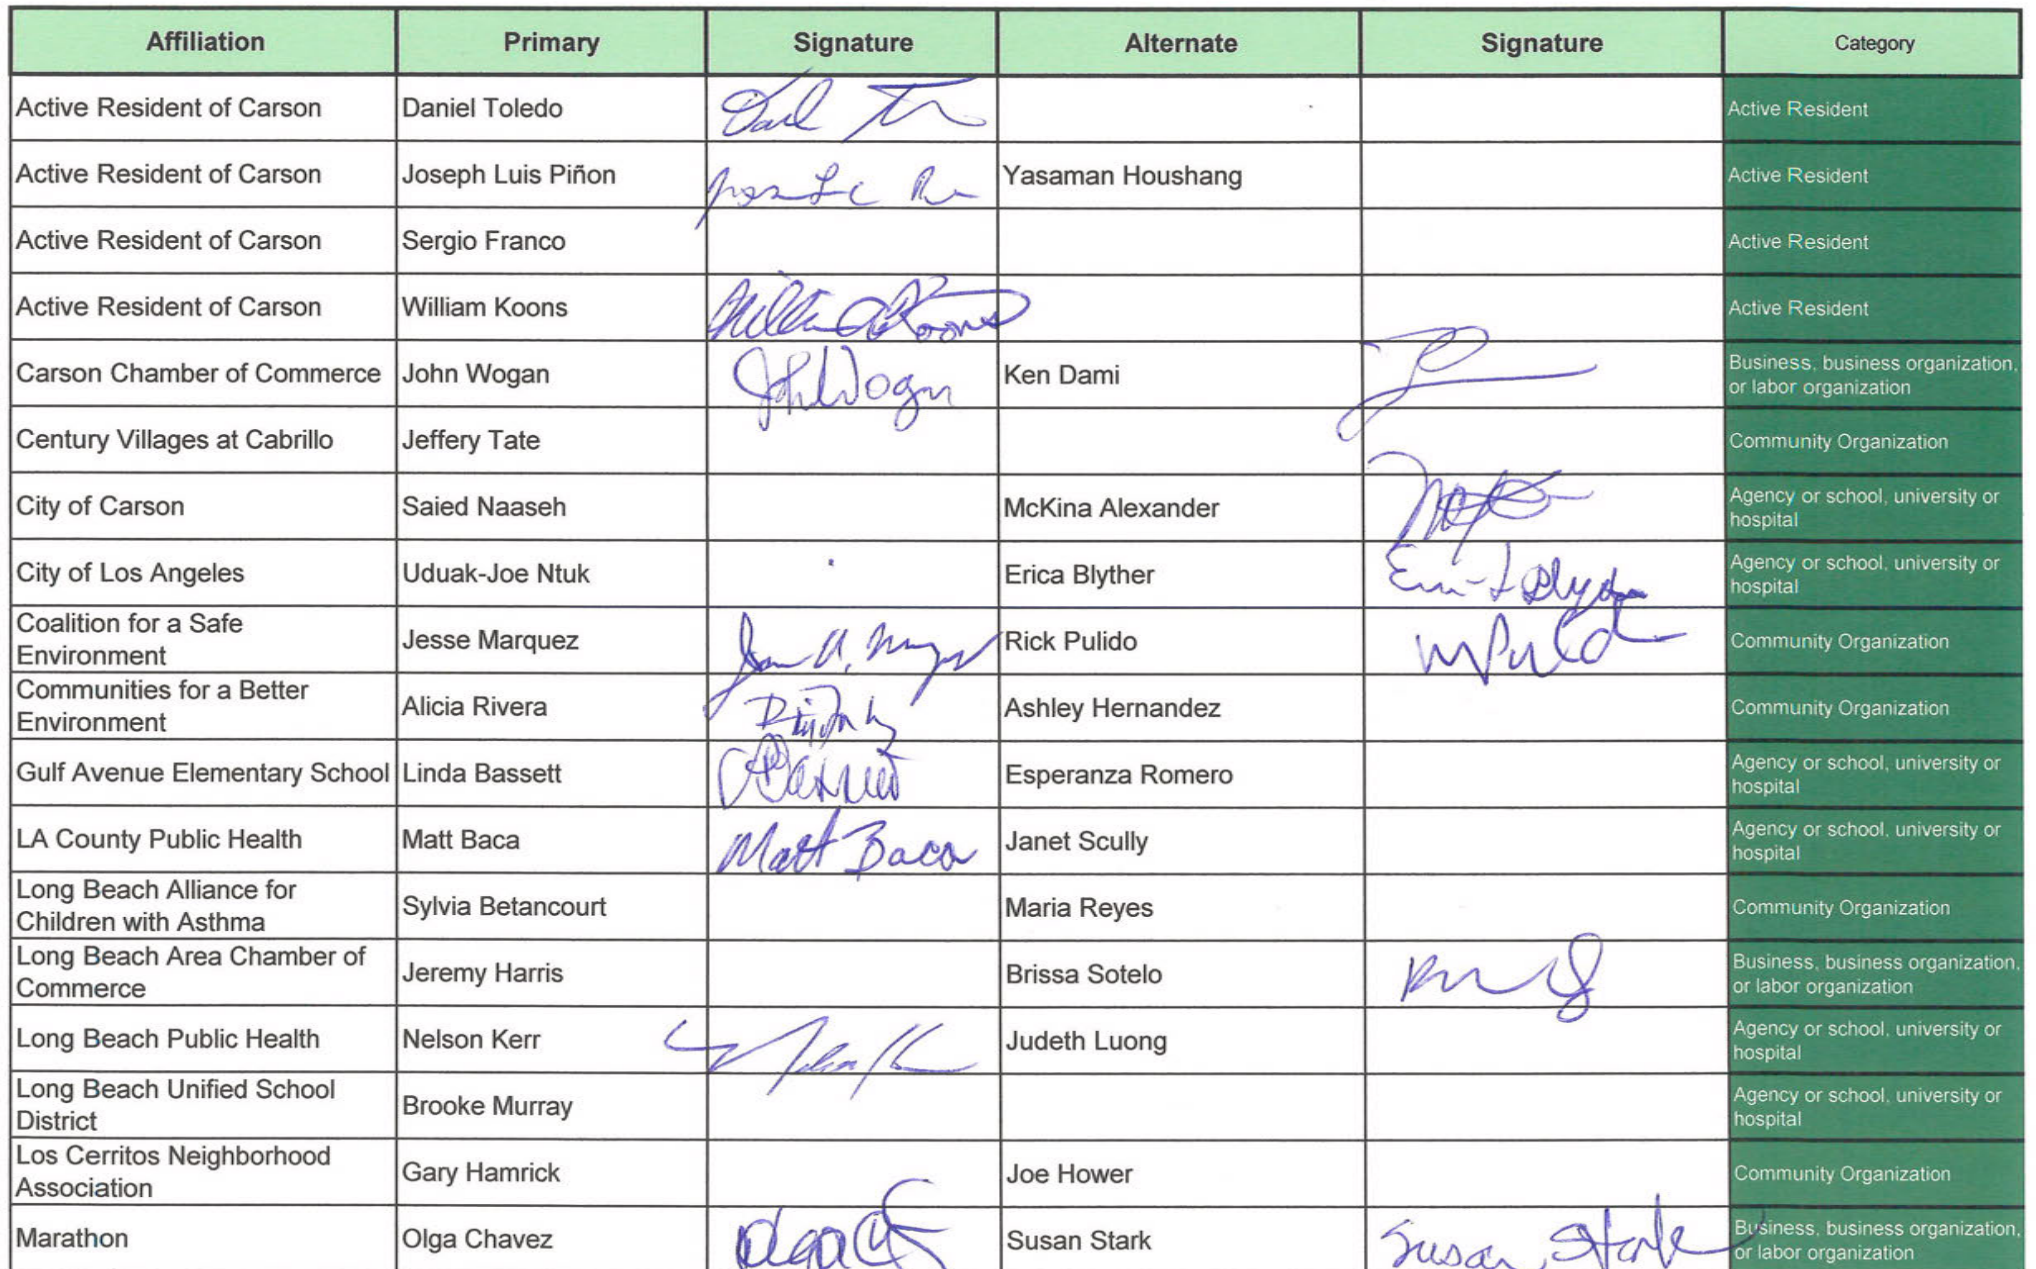 Affiliation Primary Signature Alternate Signature Category
Active Resident of Carson Daniel Toledo Active Resident
Active Resident of Carson Joseph Luis Piñon Yasaman Houshang Active Resident
Active Resident of Carson Sergio Franco Active Resident
Active Resident of Carson William Koons Active Resident
Carson Chamber of Commerce John Wogan John Wogan Ken Dami Business, business organization,
or labor organization
Century Villages at Cabrillo Jeffery Tate Community Organization
City of Carson Saied Naaseh McKina Alexander Agency or school, university or
hospital
City of Los Angeles Uduak-Joe Ntuk Erica Blyther Agency or school, university or
hospital
Coalition for a Safe
Environment Jesse Marquez Rick Pulido Community Organization
Communities for a Better
Environment Alicia Rivera Ashley Hernandez Community Organization
Gulf Avenue Elementary School Linda Bassett Esperanza Romero Agency or school, university or
hospital
LA County Public Health Matt Baca Matt Baca Janet Scully Agency or school, university or
hospital
Long Beach Alliance for
Children with Asthma Sylvia Betancourt Maria Reyes Community Organization
Long Beach Area Chamber of
Commerce Jeremy Harris Brissa Sotelo Business, business organization,
or labor organization
Long Beach Public Health Nelson Kerr Judeth Luong Agency or school, university or
hospital
Long Beach Unified School
District Brooke Murray Agency or school, university or
hospital
Los Cerritos Neighborhood
Association Gary Hamrick Joe Hower Community Organization
Marathon Olga Chavez Susan Stark Susan Stark Business, business organization,
or labor organization